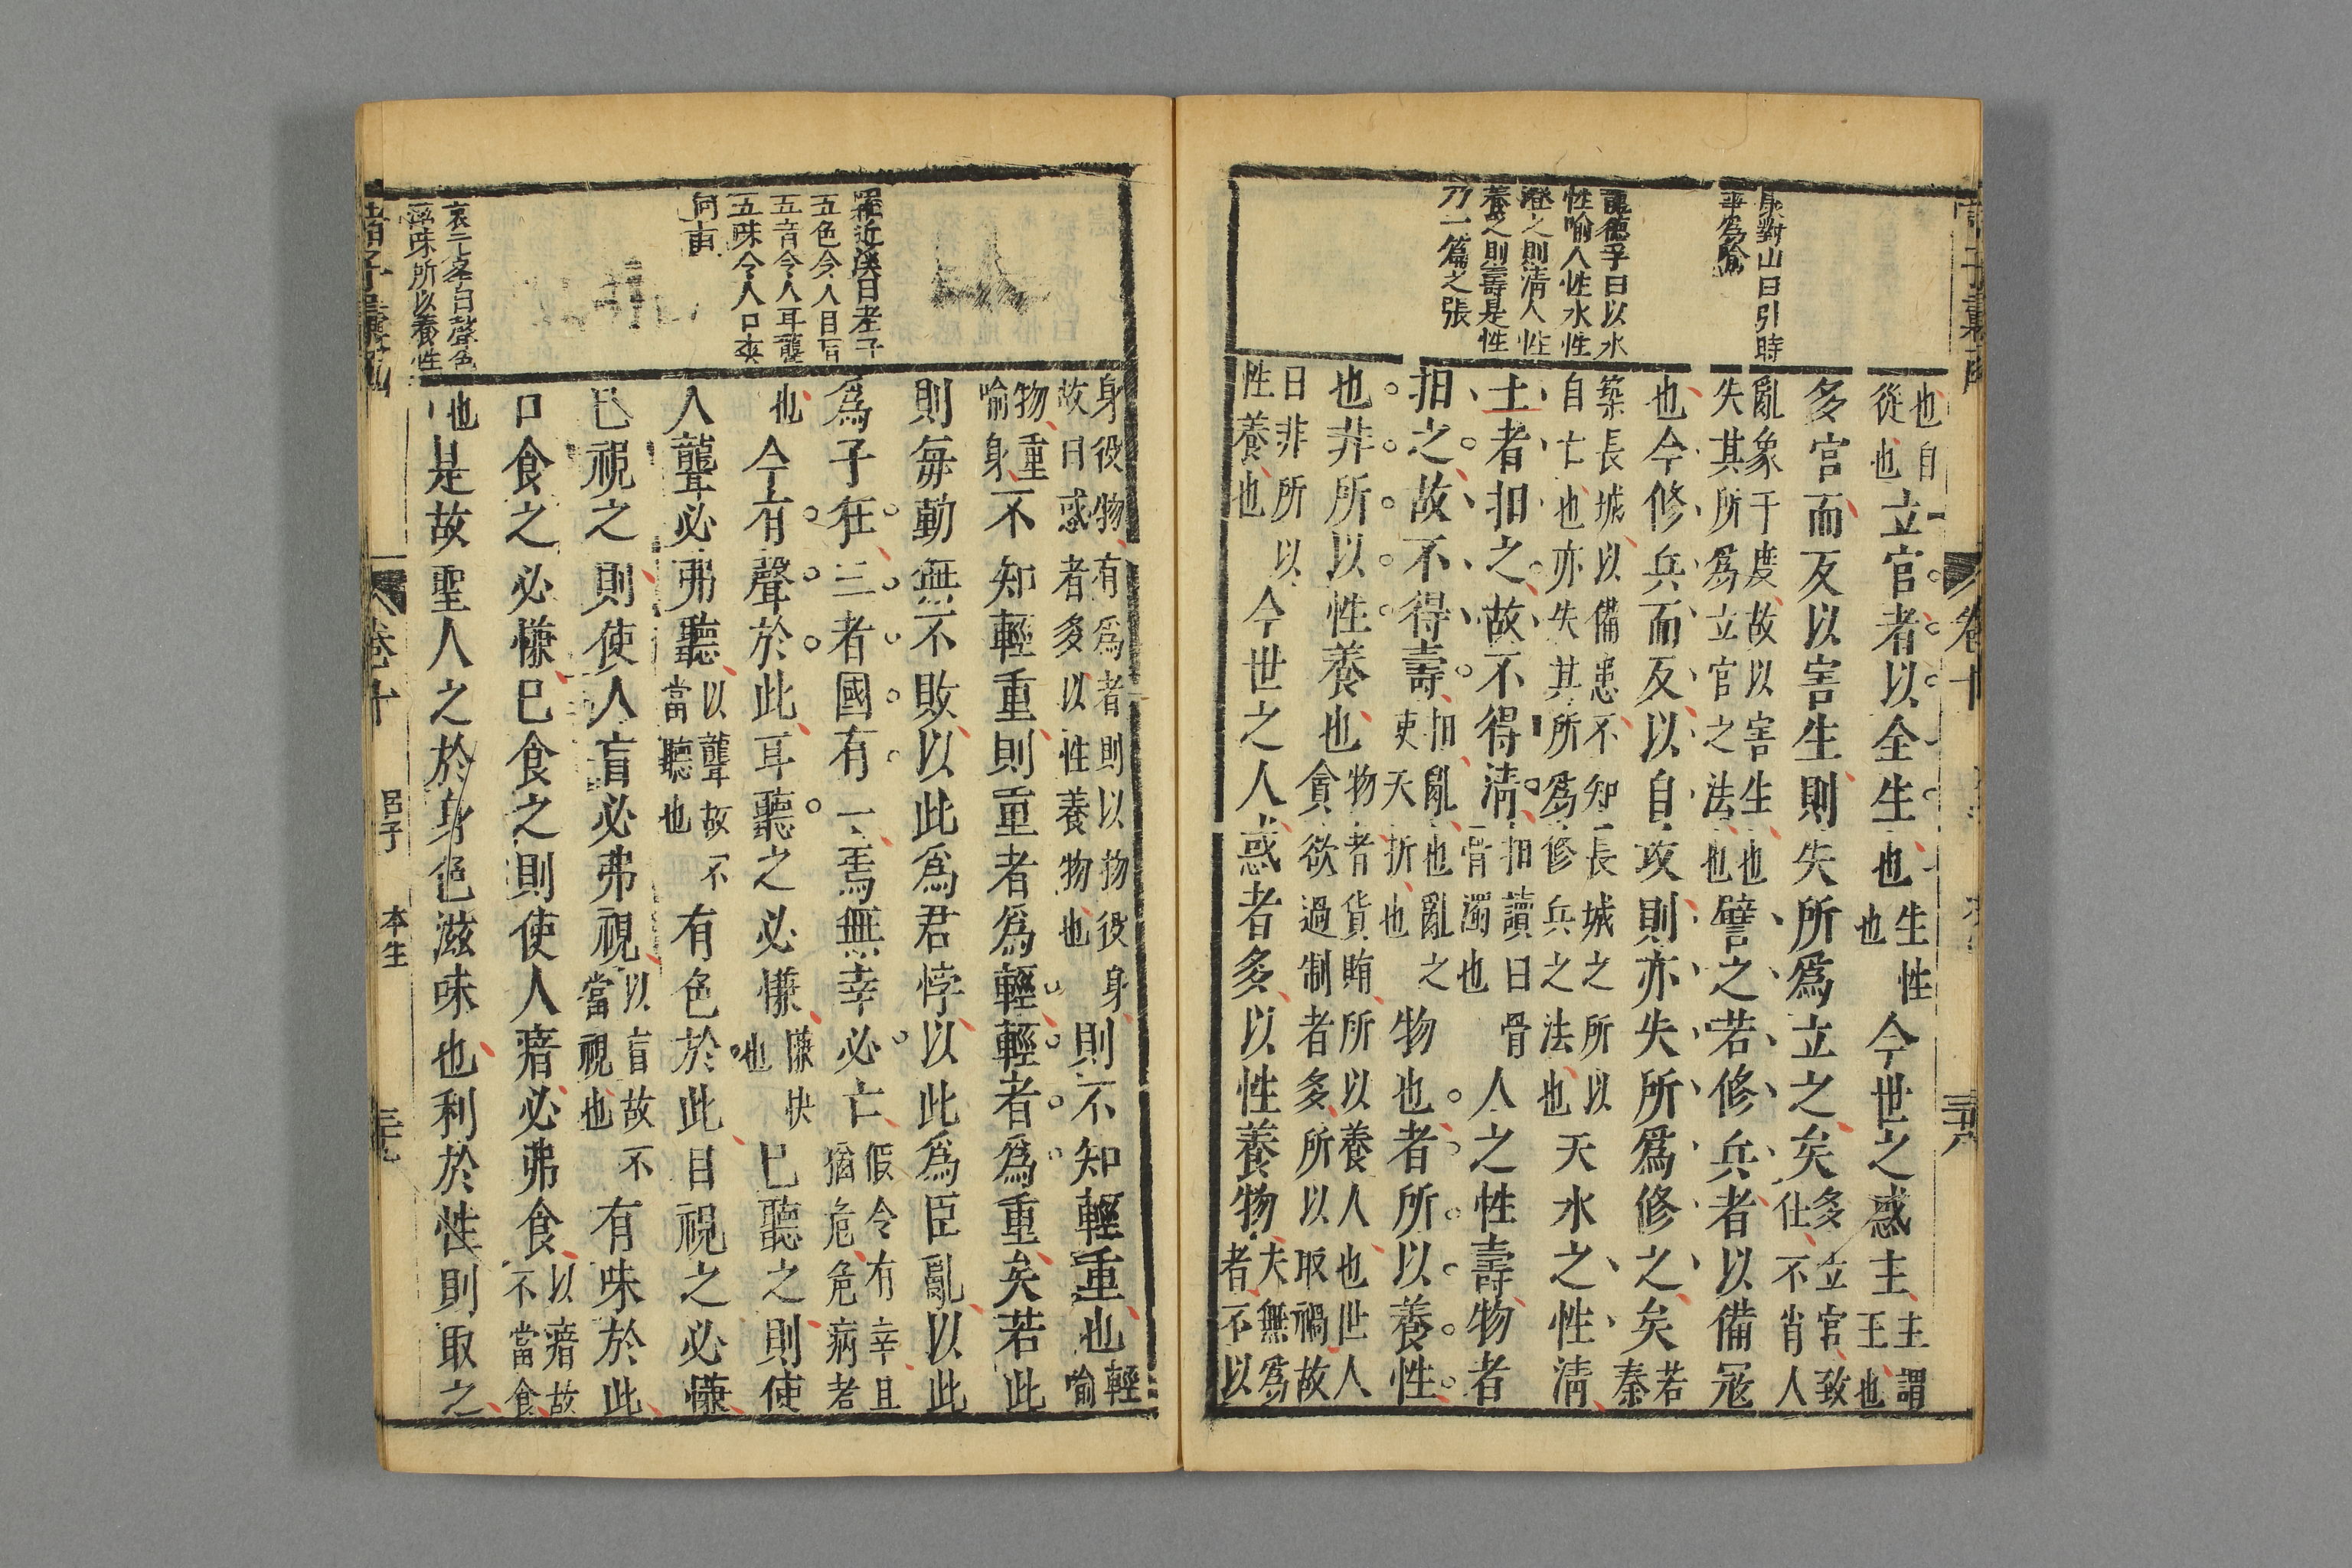 康對山曰引時
事爲喻
以水
性喻人性水性
澄之則清人性
養之則壽是性
乃一篇之張
也自
從也立官者以全生也生性
也今世之惑主主謂
王也
多官而反以害生則失所爲立之矣多立官致
仕不肖人
亂象干度故以害生也
失其所爲立官之法也譬之若修兵者以備冦
也今修兵而反以自攻則亦失所爲修之矣若
秦
築長城以備患不知長城之所以
自亡也亦失其所爲修兵之法也天水之性清
土者扣之故不得清扣讀曰骨
骨濁也人之性壽物者
扣之故不得壽扣亂也亂之
使夭折也物也者所以養性
也非所以性養也物者貨賄所以養人也世人
貪欲過制者多所以取禍故
曰非所以
性養也今世之人惑者多以性養物夫無爲
者不以
卷十
羅近溪曰老子
五色令人目盲
五音令人耳聾
五味令人口爽
何
袁元峯曰聲色
滋味所以養性
身役物有爲者則以物役身
故曰惑者多以性養物也則不知輕重也輕
喻
物重
喻身不知輕重則重者爲輕輕者爲重矣若此
則毎動無不敗以此爲君悖以此爲臣亂以此
爲子狂三者國有一焉無幸必亡假令有幸且
猶危危病者
也今有聲於此耳聽之必慊慊快
也已聽之則使
人聾必弗聽以聾故不
當聽也有色於此目視之必慊
已視之則使人盲必弗視以盲故不
當視也有味於此
口食之必慊已食之則使人瘖必弗食以瘖故
不當食
也是故聖人之於身色滋味也利於性則取之
卷十
呂子
本生